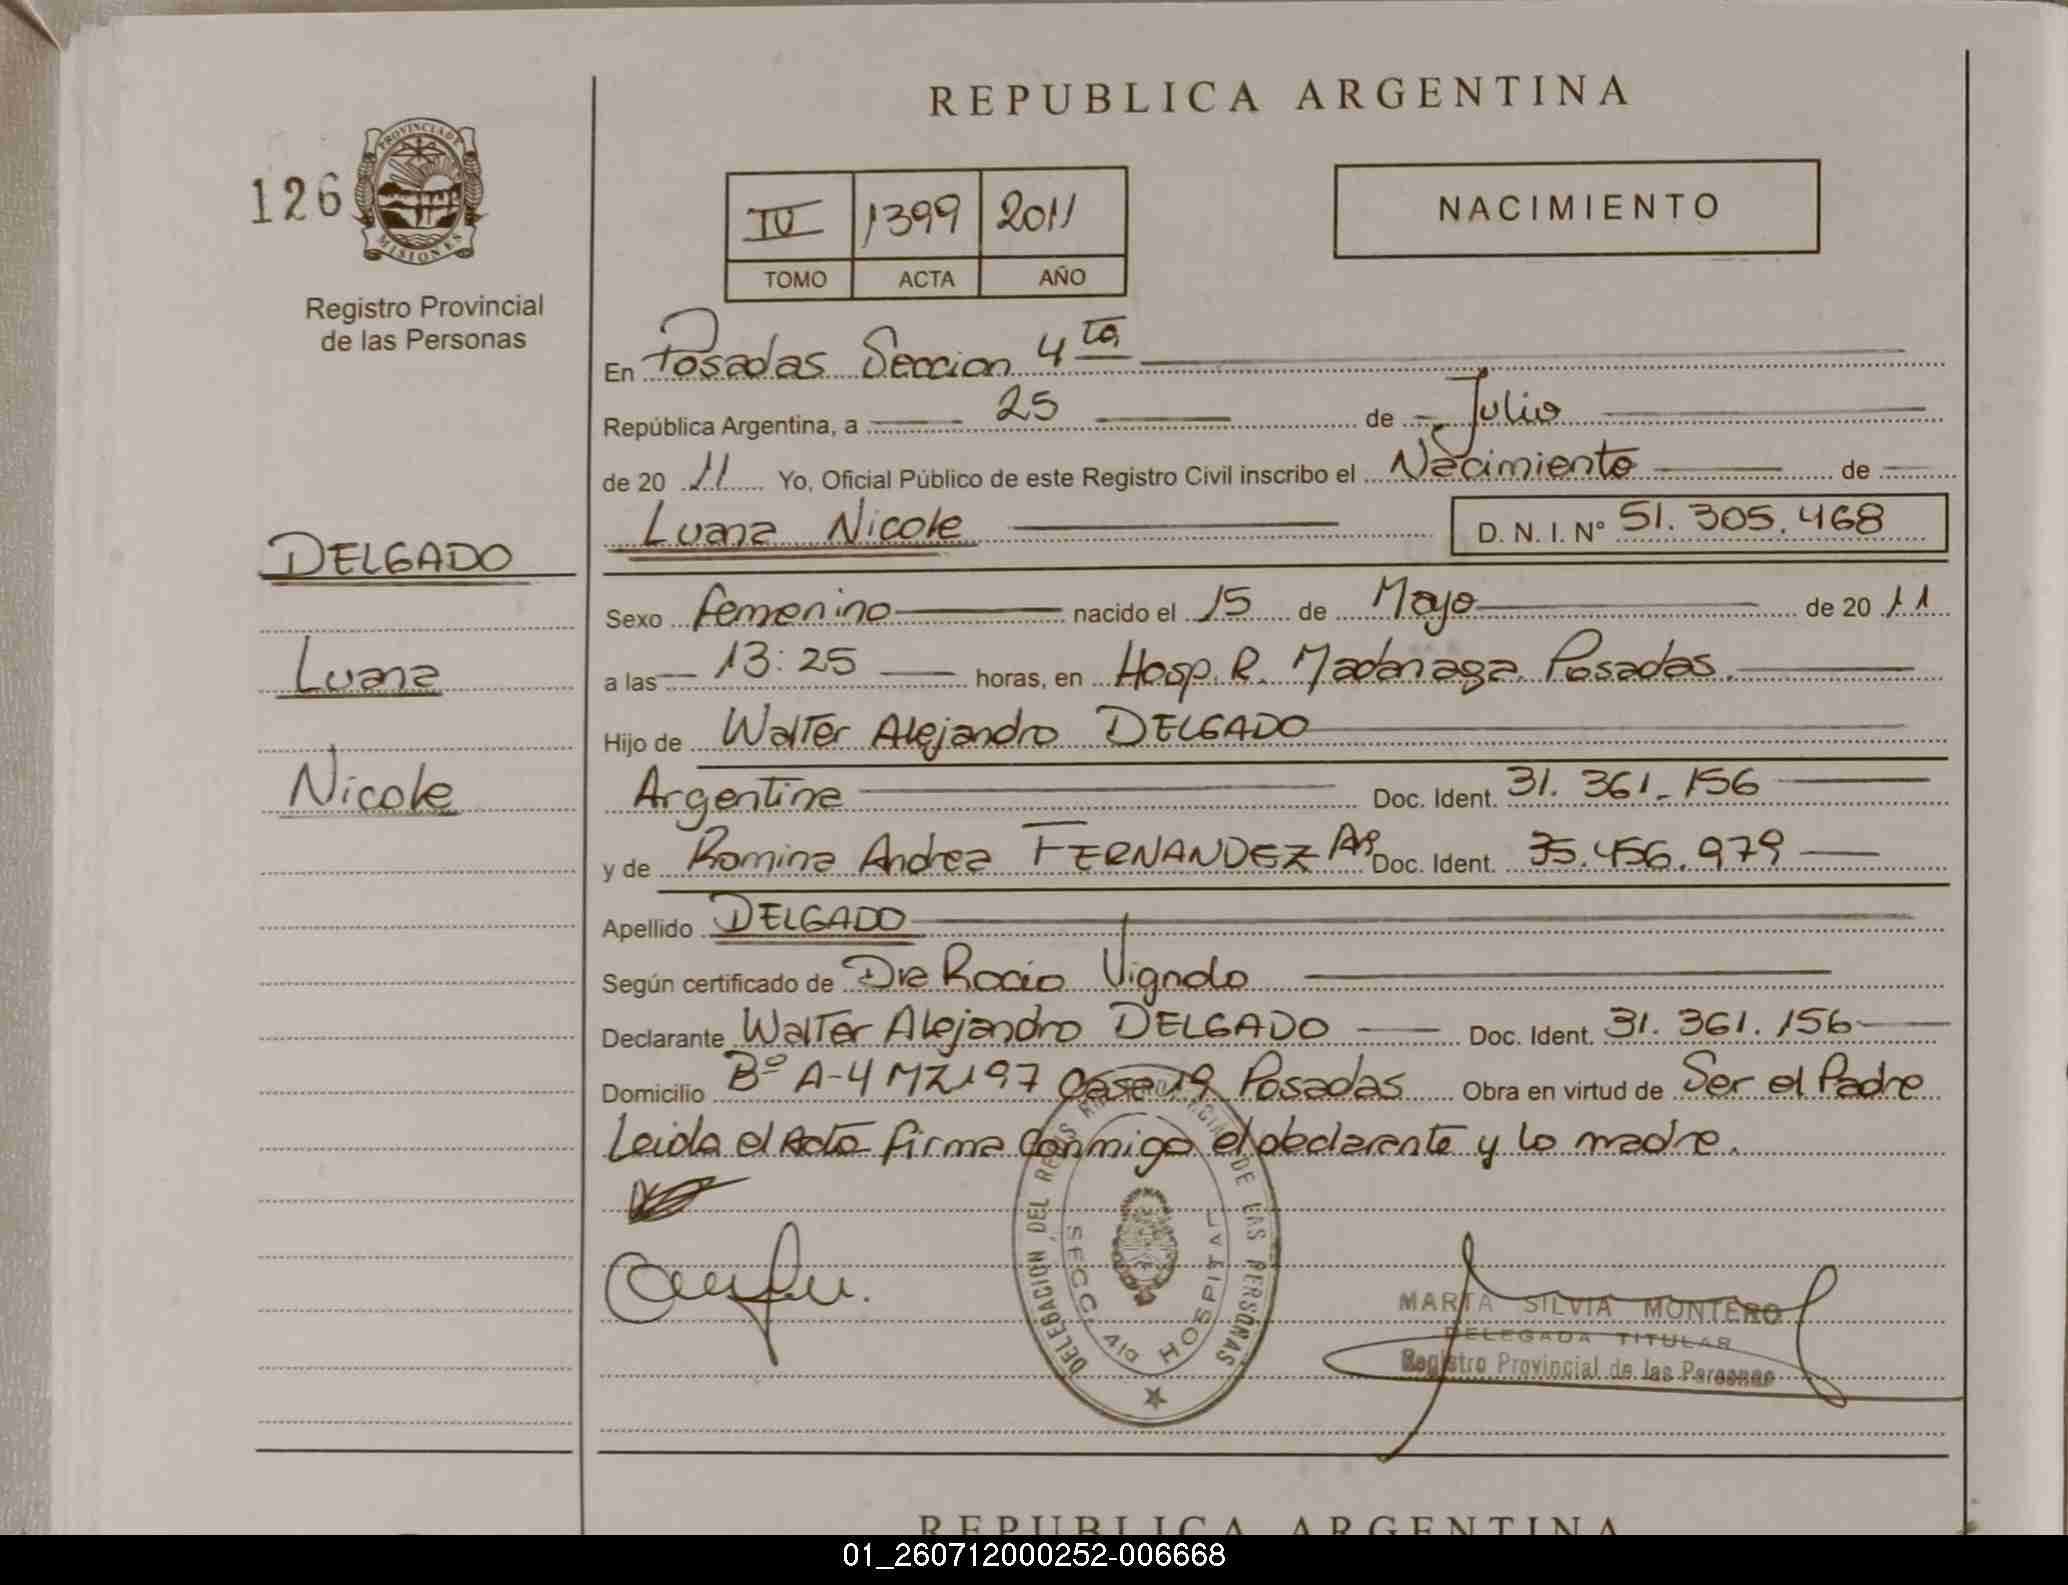 REPUBLICA ARGENTINA
126
PROVINCIA DE
MISIONES
Registro Provincial
de las Personas
IV 1399 2011
TOMO ACTA AÑO
NACIMIENTO
En Posadas Seccion 4ta
República Argentina, a 25 de Julio
de 20 11 Yo, Oficial Público de este Registro Civil inscribo el Nacimiento de
Luana Nicole D. N. I. N° 51.305.468
DELGADO
Luana
Nicole
Sexo femenino nacido el 15 de Mayo de 20 11
a las 13:25 horas, en Hosp. R. Madariaga. Posadas.
Hijo de Walter Alejandro DELGADO
Argentina Doc. Ident. 31.361.156
y de Romina Andrea FERNANDEZ Ar Doc. Ident. 35.456.979
Apellido DELGADO
Según certificado de Dra Rocio Vignolo
Declarante Walter Alejandro DELGADO Doc. Ident. 31.361.156
Domicilio Bº A-4 MZ 197 Casa 19 Posadas Obra en virtud de Ser el Padre
Leida el Acta firma Conmigo el declarante y la madre.
DELEGACION DEL REGISTRO PROVINCIAL DE LAS PERSONAS
SECC. 4ta HOSPITAL
MARTA SILVIA MONTERO
DELEGADA TITULAR
Registro Provincial de las Personas
REPUBLICA ARGENTINA
01_260712000252-006668